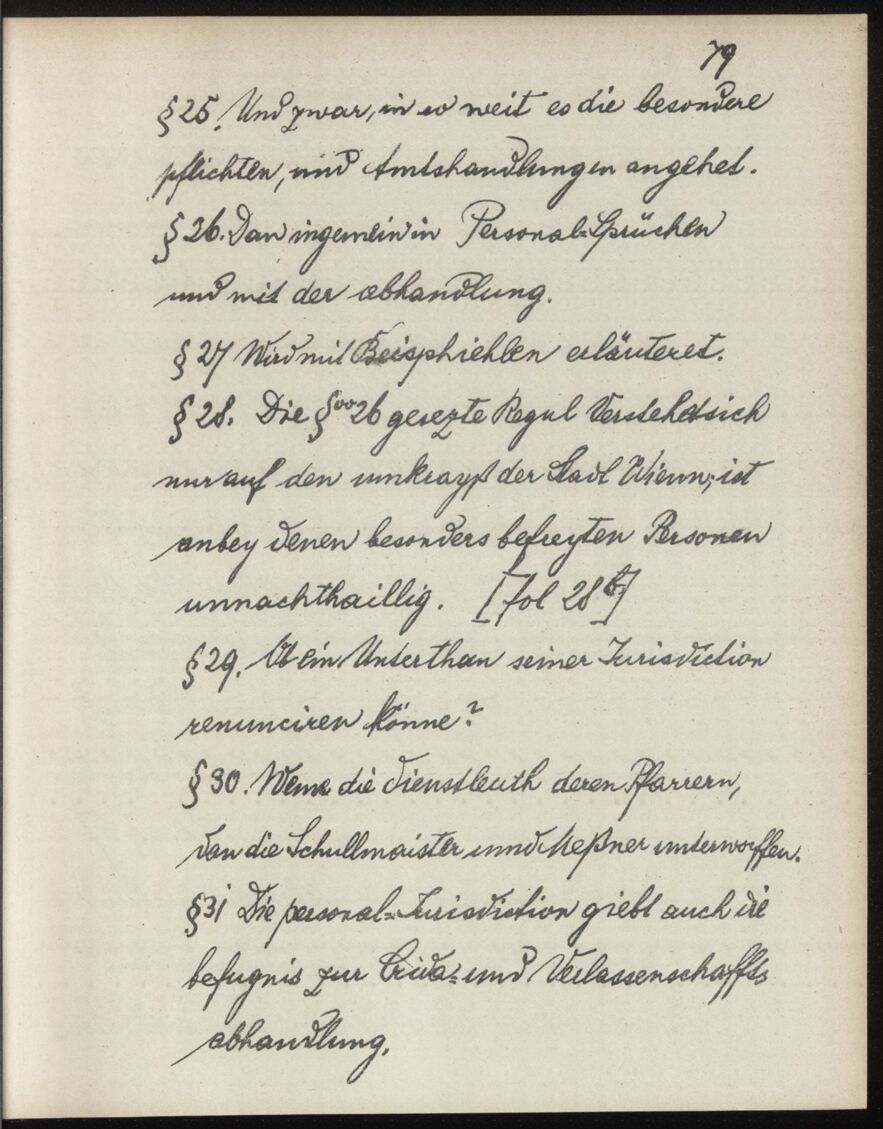 79
§25. Und zwar, in so weit es die besondere
pflichten, und Amtshandlungen angehet.
§26. Dan ingemein in Personal-Sprüchen
und mit der abhandlung.
§27 Wird mit Beisphiehlen erläuteret.
§28. Die §oo 26 gesezte Regul Verstehet sich
nur auf den umkrayß der Stadt Wienn; ist
anbey denen besonders befreyten Personen
unnachthaillig. [fol 28b]
§29. Ob ein Unterthan seiner Jurisdiction
renunciren könne?
§30. Weme die dienstleuth deren Pfarrern,
dan die Schullmaister unnd Meßner unterworffen.
§31 Die personal-Jurisdiction giebt auch die
befugnis zur Crida- und Verlassenschaffts
abhandlung.